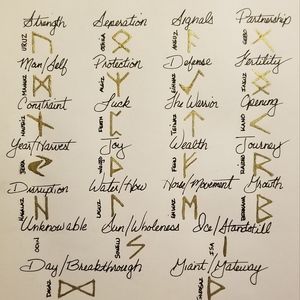 Strength Seperation Signals Partnership
URUZ OTHILA ANSUZ GEBO
Man/Self Protection Defense Fertility
MANNAZ ALGIZ EIHWAZ INGUZ
Constraint Luck The Warrior Opening
NAUTHIZ PERTH TEIWAZ KANO
Year/Harvest Joy Wealth Journey
JERA WUNJO FEHU RAIDO
Disruption Water/Flow Horse/Movement Growth
HAGALAZ LAGUZ EHWAZ BERKANA
Unknowable Sun/Wholeness Ice/Standstill
ODIN SOWELU ISA
Day/Breakthrough Giant/Gateway
DAGAZ THURISAZ